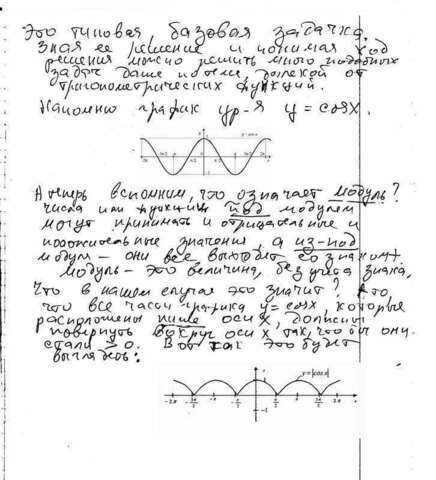 Это типовая, базовая задачка.
Зная ее решение и понимая ход
решения можно решить много подобных
задач даже по теме, далекой от
тригонометрических функций.
Напомню график ур-я y = cosx.
А теперь вспомним, что означает модуль?
Числа или функции под модулем
могут принимать и отрицательные и
положительные значения, а из-под
модуля - они все выходят со знаком +.
Модуль - это величина, без учета знака.
Что в нашем случае это значит? А то,
что все части графика y = cosx, которые
расположены ниже оси X, должны
повернуть вокруг оси X так, что бы они
стали > 0. Вот так это будет
выглядеть:
y=|cos x|
1
-2π -3π/2 -π/2 π/2 3π/2 2π x
-1